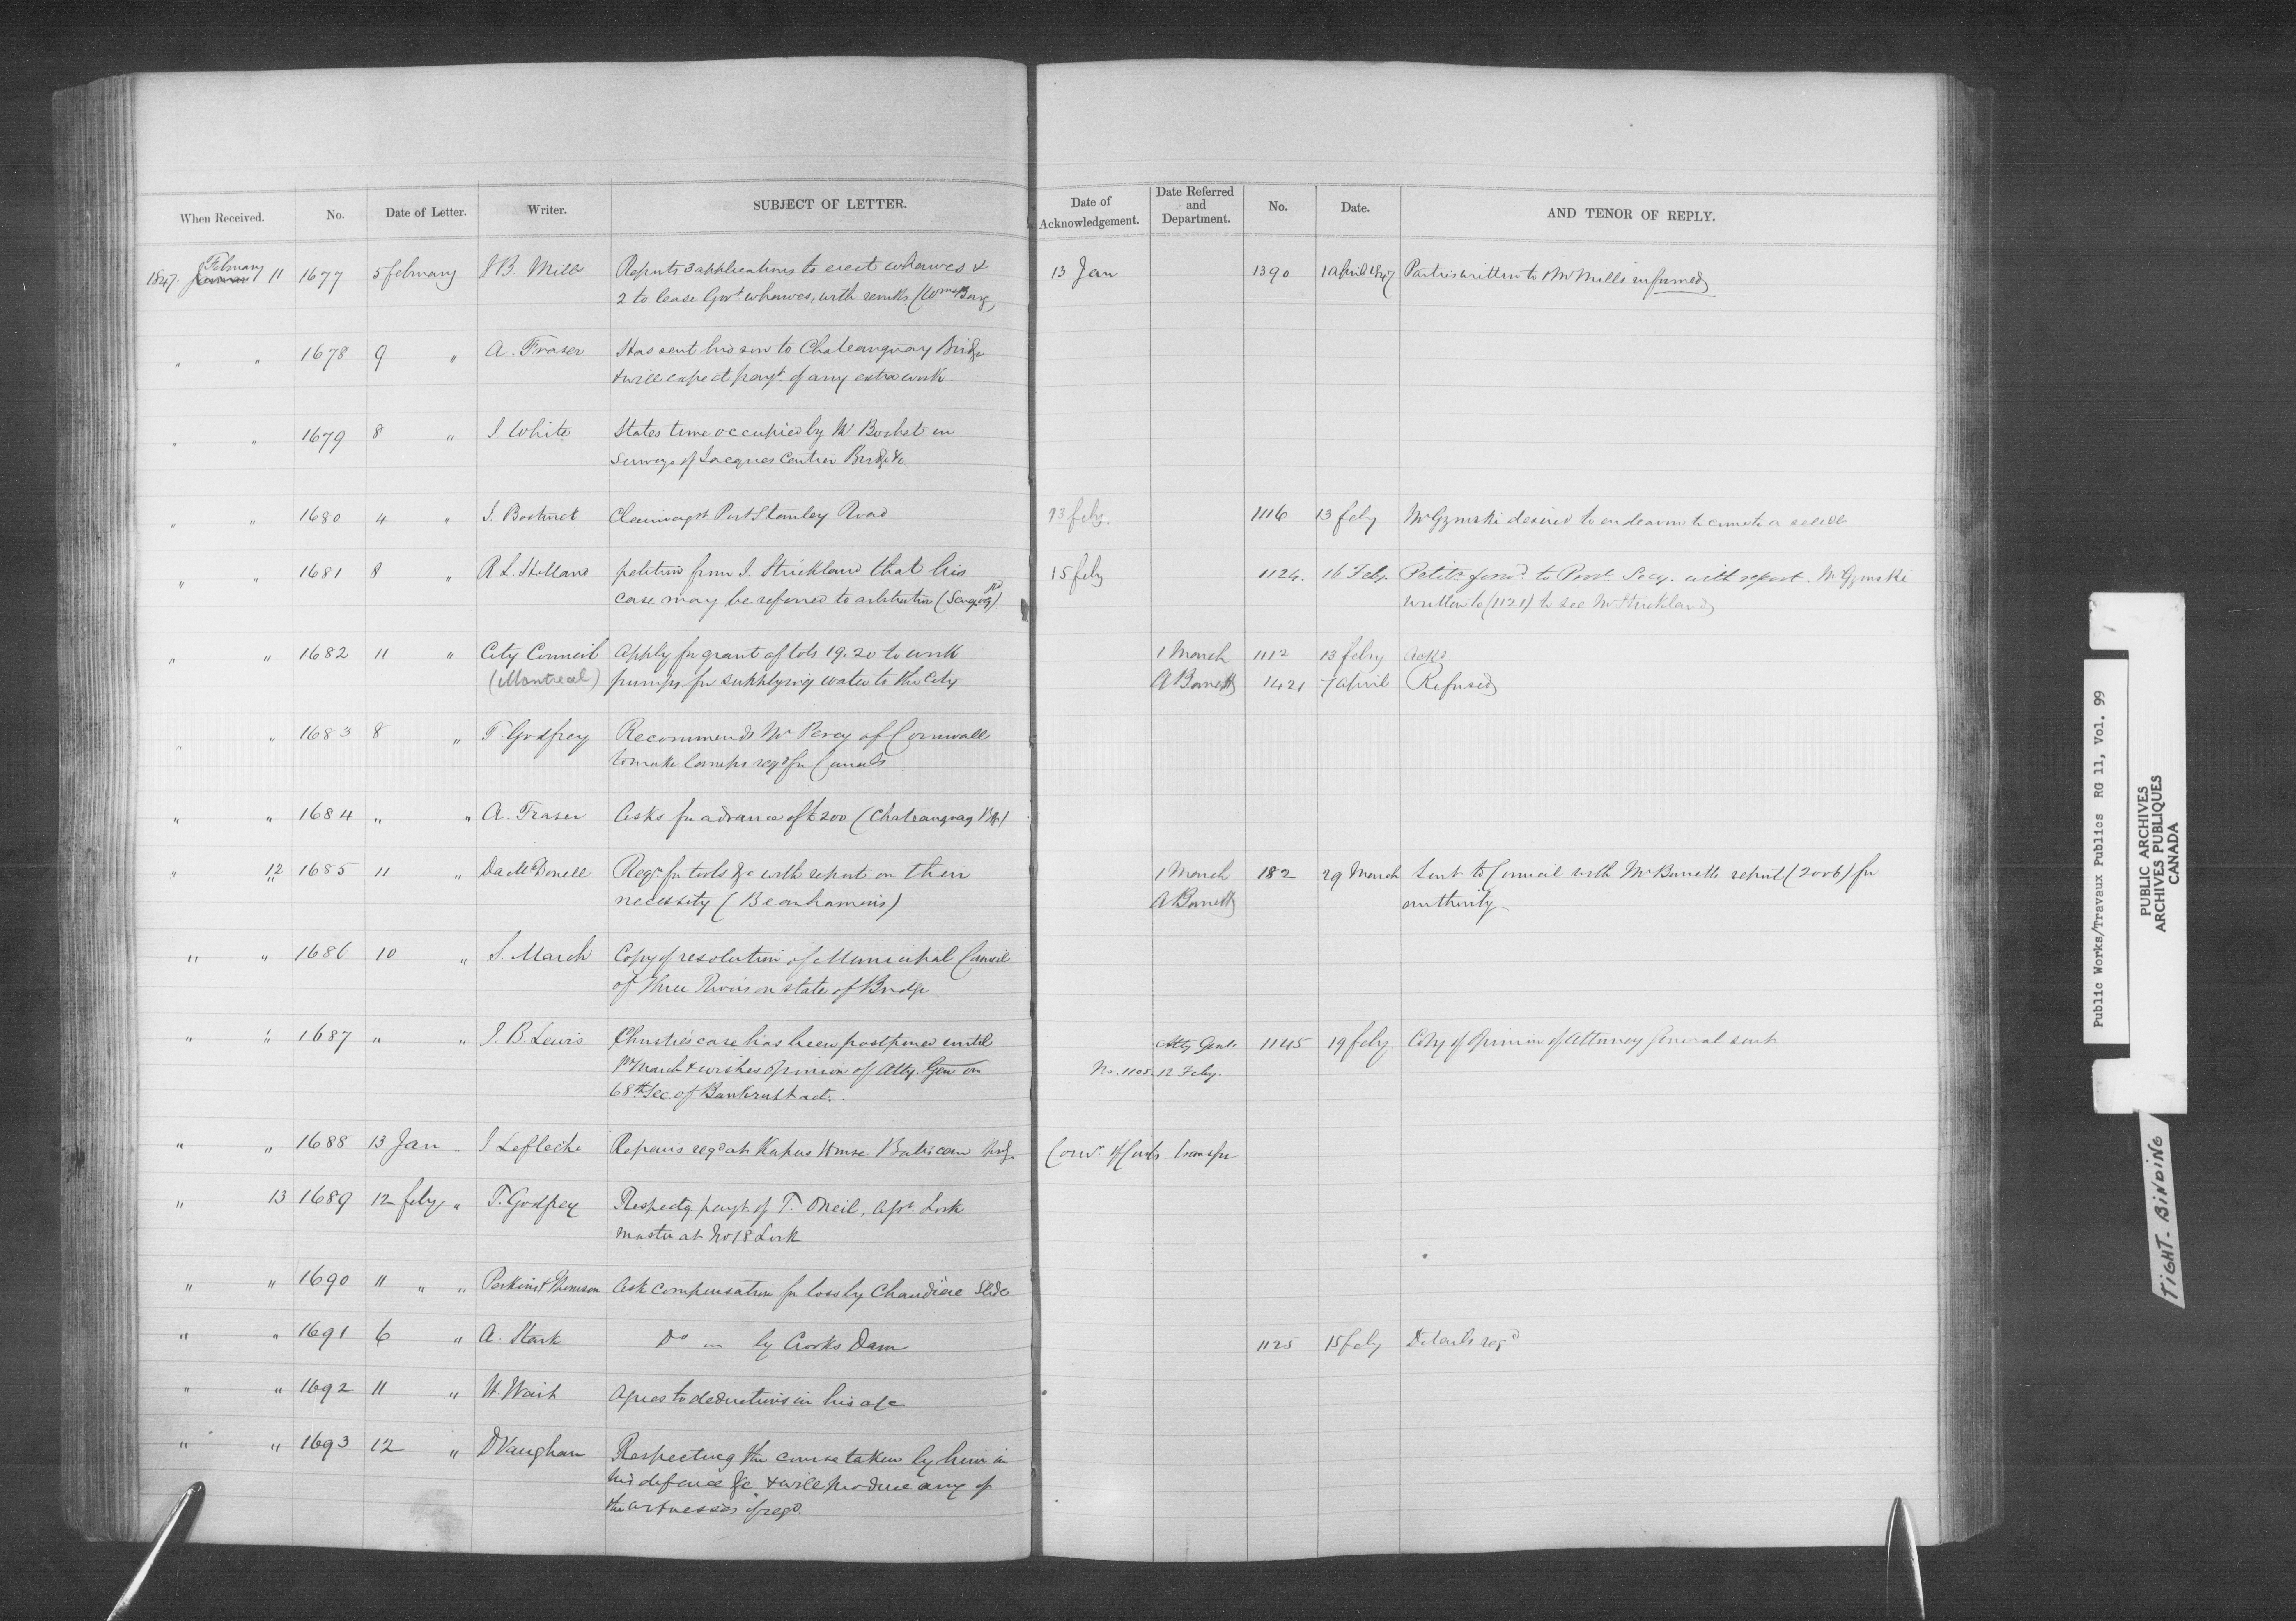 When Received. No. Date of Letter. Writer. SUBJECT OF LETTER. Date of Acknowledgement. Date Referred and Department. No. Date. AND TENOR OF REPLY.
1847. February 11 1677 5 february J B. Mills Reports 3 applications to erect wharves & 13 Jan 1390 1 april 1847 Parties written to & Mr Mills informed
2 to lease Govt wharves, with remks
" " 1678 9 " A. Fraser Has sent his son to Chateauguay Bridge
& will expect payt. of any extra work.
" " 1679 8 " J. White States time occupied by Mr in
surveys of Jacques Cartier Bridge &c
" " 1680 4 " J. Clearing st. Port Stanley Road 13 feby. 1116 13 feby Mr Gzowski desired to endeavor to
" " 1681 8 " R L. Holland petition from J. Strickland that his 15 feby 1124. 16 Feby. Petitn forwd. to Provl. Secy. with report. Mr Gzowski
case may be referred to arbitration written to (1121) to see Mr Strickland
" " 1682 11 " City Council Apply for grant of lots 19. 20 to work 1 March 1112 13 feby Ackd
(Montreal) pumps for supplying water to the City A Barrett 1421 7 april Refused
" " 1683 8 " T Godfrey Recommends Mr Percy of Cornwall
to make lamps reqd for Canals
" " 1684 " " A. Fraser Asks for advance of £200 (Chateauguay Br)
" 12 1685 11 " Da McDonell Reqn. for tools &c with report on their 1 March 182 29 March Sent to Council with Mr Barretts report (2006) for
necessity (Beauharnois) A Barrett authority
" " 1686 10 " S. March Copy of resolution of Municipal Council
of Three Rivers on state of Bridge
" " 1687 " " J. B. Lewis Christie's case has been postponed until Atty Genl. 1145 19 feby. Copy of Opinion of Attorney General sent
1st March & wishes opinion of Atty. Gen on No. 1105. 12 Feby.
68th Sec of Bankrupt act.
" " 1688 13 Jan " J Lefleche Repairs reqd at House Batiscan brdg.
" 13 1689 12 feby " T. Godfrey Respectg payt. of T. ONeil, asst. Lock
master at No 18 Lock
" " 1690 11 " " Perkins & Thomson Ask compensation for loss by Chaudiere Slide
" " 1691 6 " A. Stark Do " by Crooks Dam 1125 15 feby Details reqd
" " 1692 11 " H. Wait Agrees to deductions in his a/c
" " 1693 12 " D Vaughan Respecting the course taken by him in
his defence &c & will produce any of
the witnesses if reqd.
Public Works/Travaux Publics RG 11, Vol. 99
PUBLIC ARCHIVES
ARCHIVES PUBLIQUES
CANADA
TIGHT-BINDING